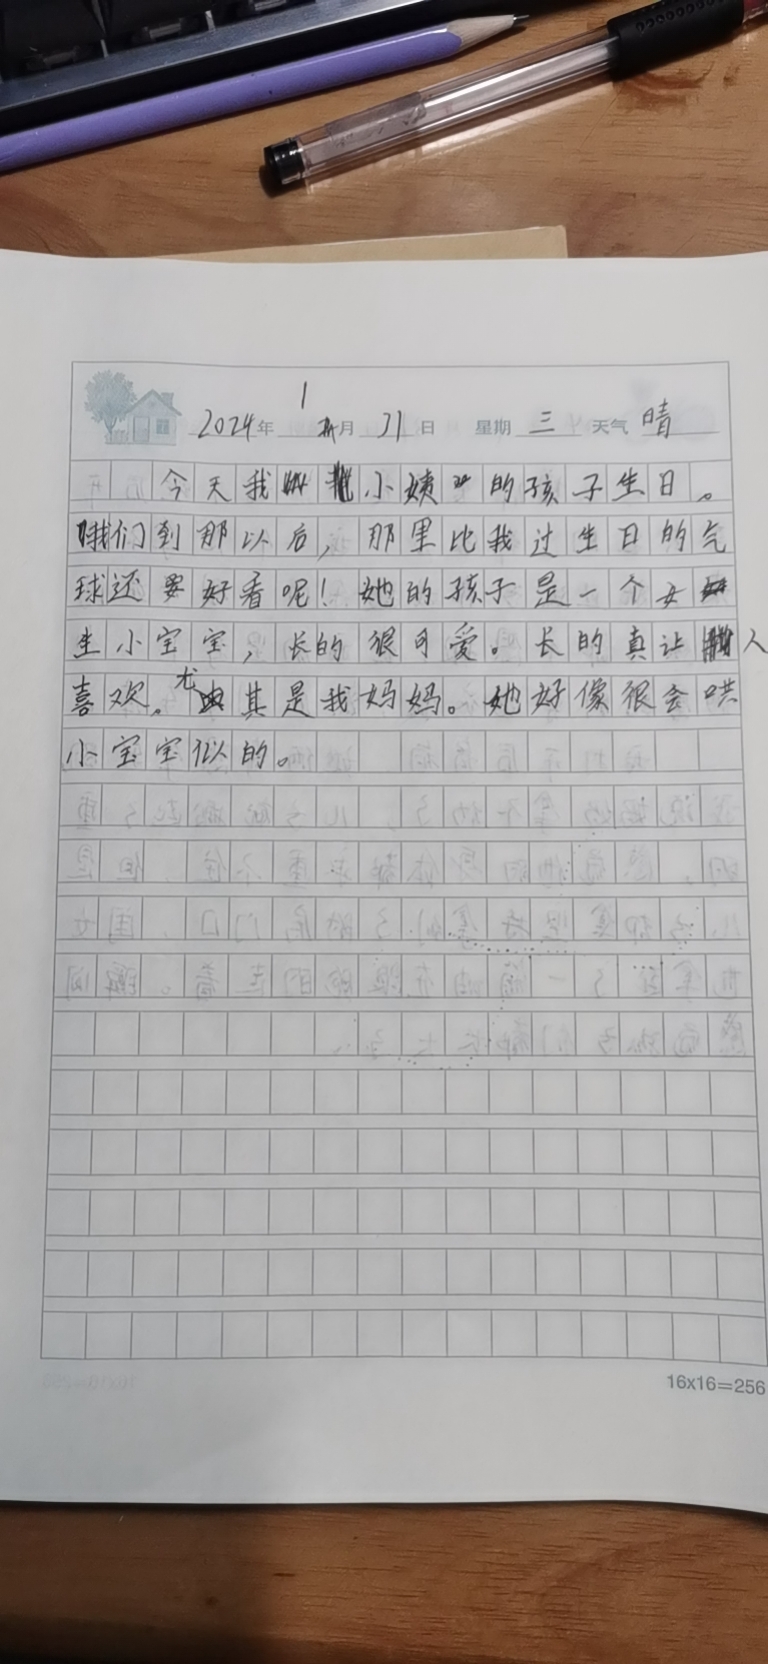 2024年 1月 31日 星期 三 天气 晴
今天我小姨的孩子生日。
我们到那以后，那里比我过生日的气
球还要好看呢！她的孩子是一个女
生小宝宝，长的很可爱。长的真让人
喜欢。尤其是我妈妈。她好像很会哄
小宝宝似的。
16x16=256